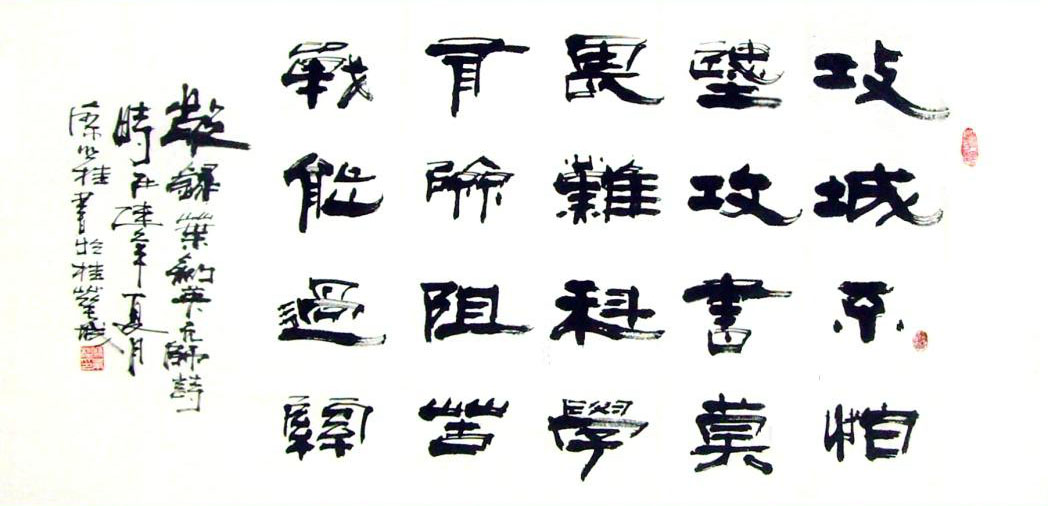 攻城不怕
堅攻書莫
畏難科學
有險阻苦
戰能過關
敬錄葉劍英元帥詩
時在年夏月
桂書於桂城